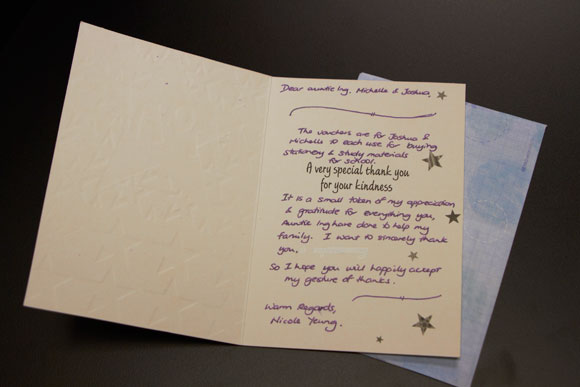 Dear auntie Ing, Michelle & Joshua,
The vouchers are for Joshua &
Michelle to each use for buying
stationery & study materials
for school.
A very special thank you
for your kindness
It is a small token of my appreciation
& gratitude for everything you,
Auntie Ing have done to help my
family. I want to sincerely thank
you.
So I hope you will happily accept
my gesture of thanks.
Warm Regards,
Nicole Yeung.